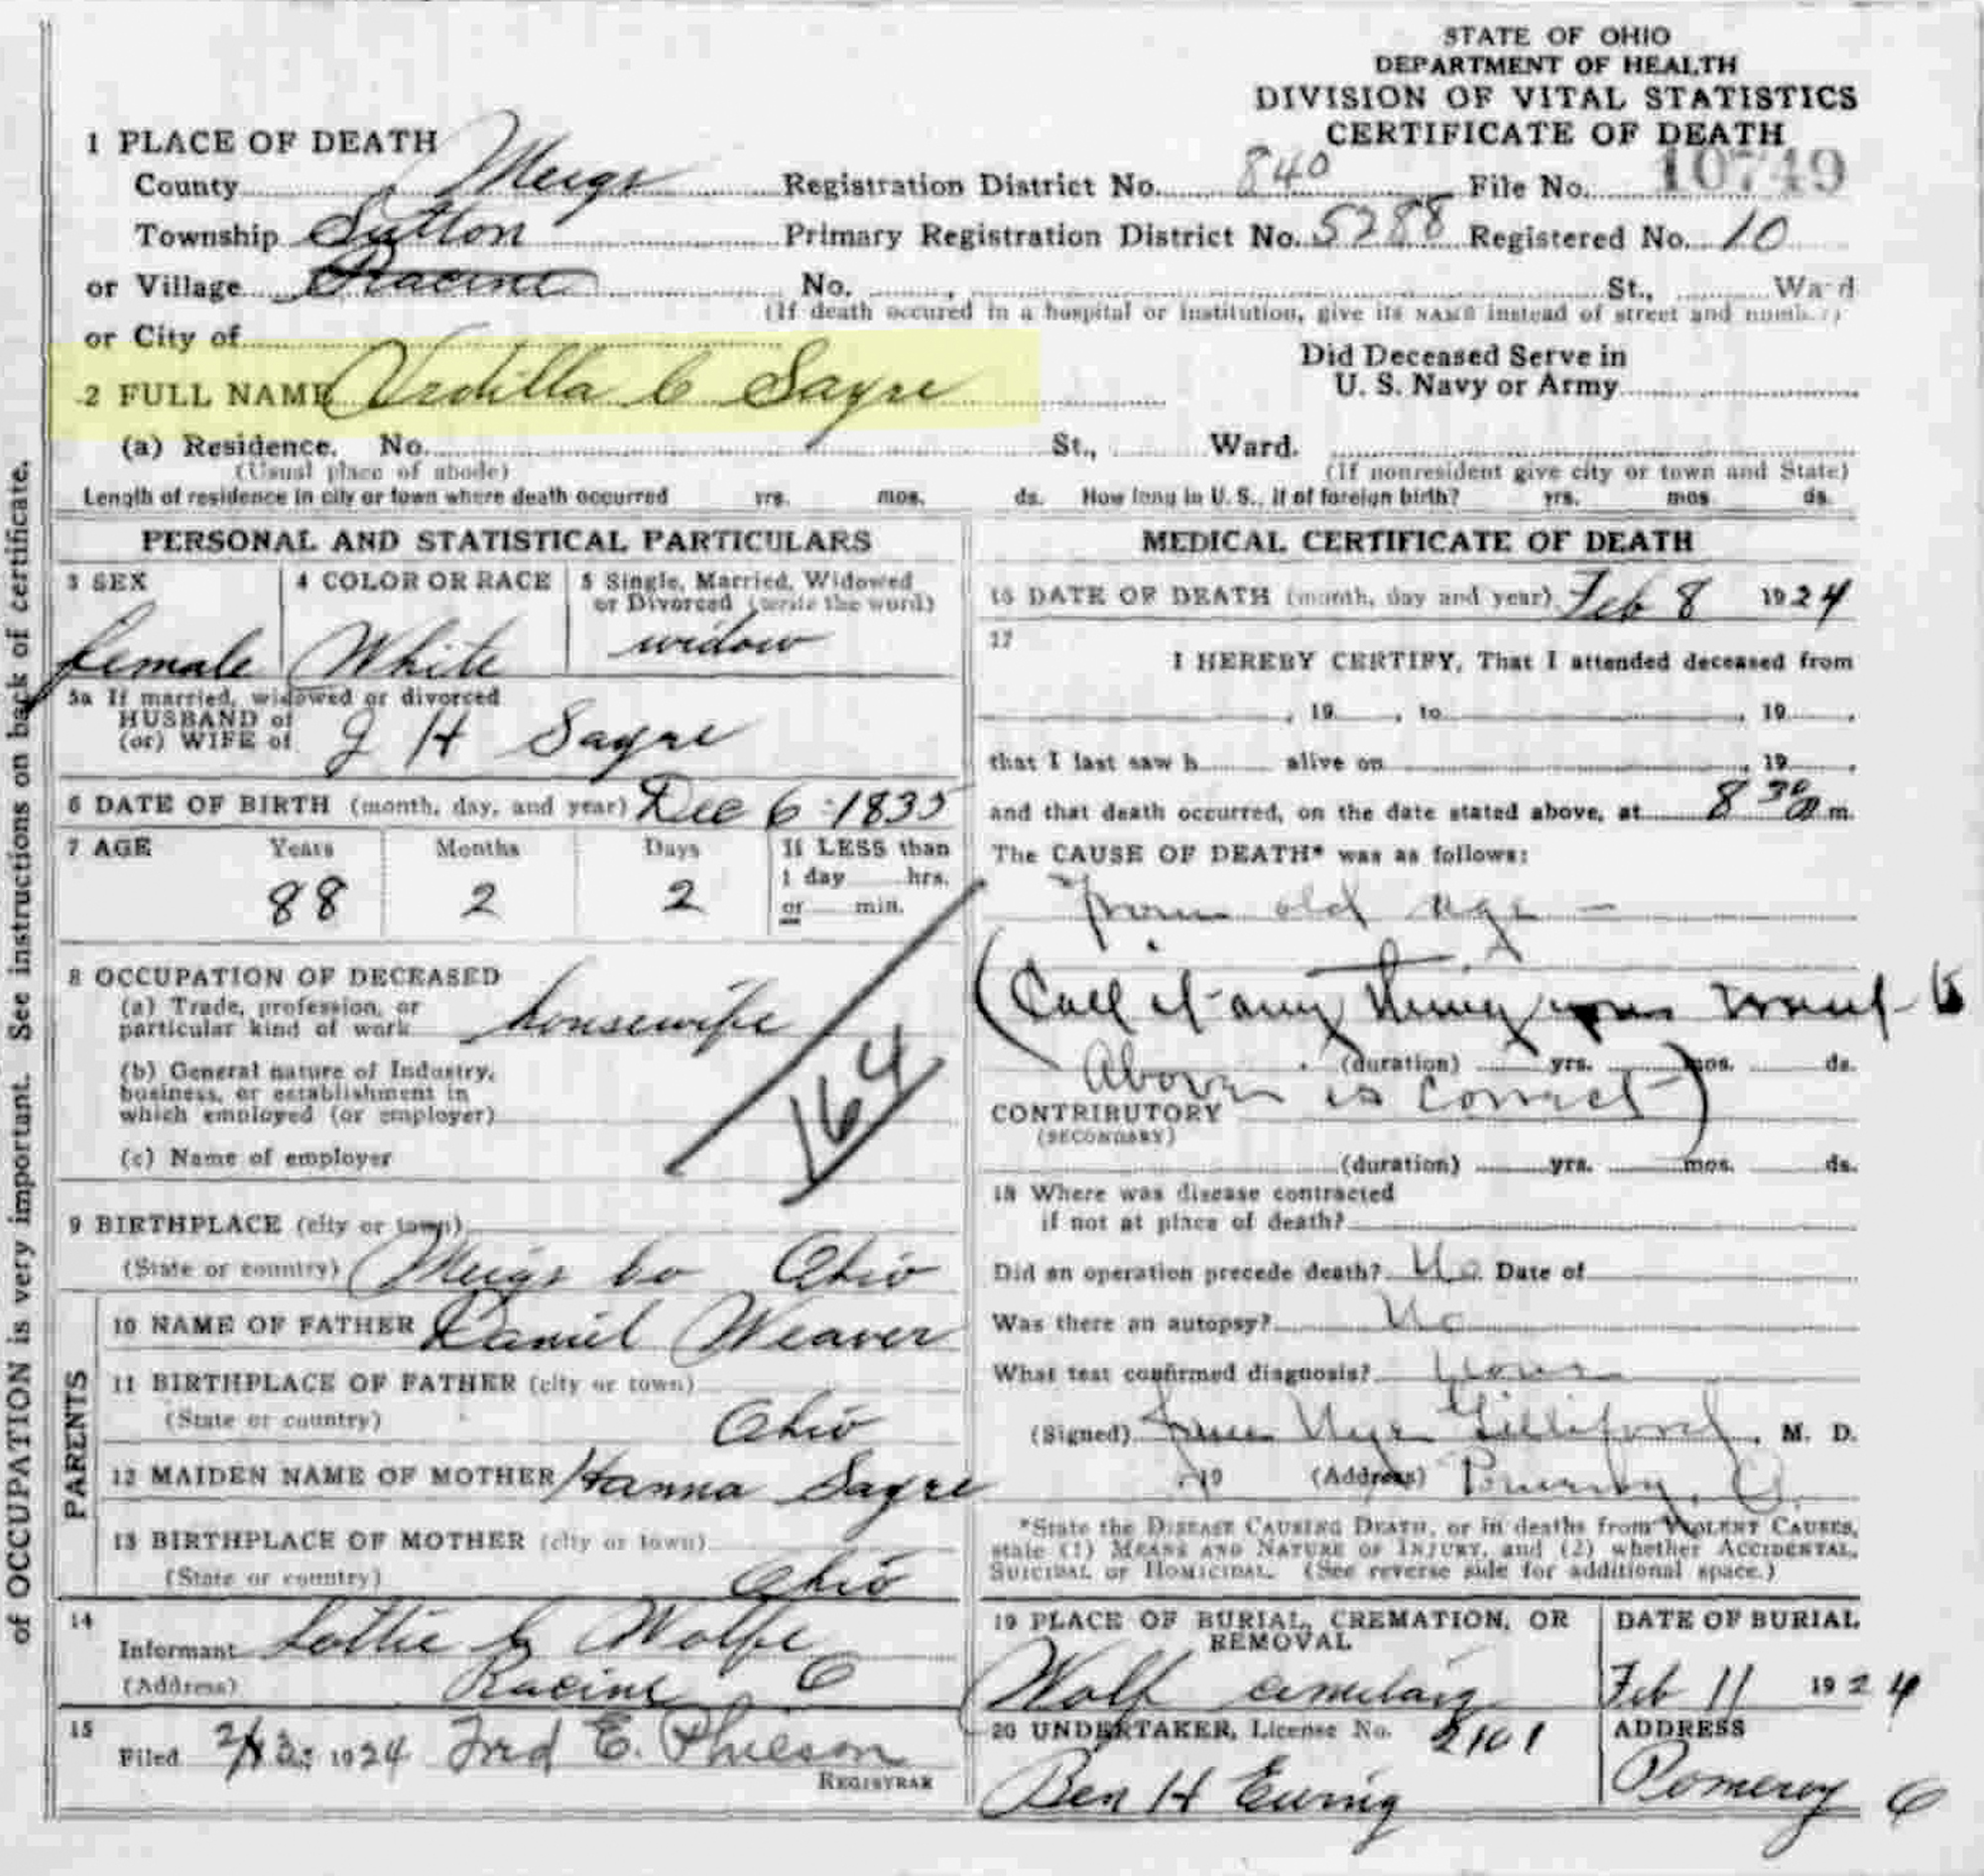 STATE OF OHIO
DEPARTMENT OF HEALTH
DIVISION OF VITAL STATISTICS
CERTIFICATE OF DEATH
1 PLACE OF DEATH
County Meigs Registration District No. 840 File No. 10749
Township Sutton Primary Registration District No. 5288 Registered No. 10
or Village Racine No. , St., Ward
(If death occured in a hospital or institution, give its NAME instead of street and number)
or City of
Did Deceased Serve in
U. S. Navy or Army
2 FULL NAME Ardilla C Sayre
(a) Residence. No. St., Ward.
(Usual place of abode) (If nonresident give city or town and State)
Length of residence in city or town where death occurred yrs. mos. ds. How long in U. S., if of foreign birth? yrs. mos ds.
of OCCUPATION is very important. See instructions on back of certificate.
PERSONAL AND STATISTICAL PARTICULARS
3 SEX 4 COLOR OR RACE 5 Single, Married, Widowed
or Divorced (write the word)
female White widow
5a If married, widowed or divorced
HUSBAND of
(or) WIFE of J H Sayre
6 DATE OF BIRTH (month, day, and year) Dec 6 1835
7 AGE Years Months Days If LESS than
1 day hrs.
88 2 2 or min.
8 OCCUPATION OF DECEASED
(a) Trade, profession, or
particular kind of work housewife
(b) General nature of Industry,
business, or establishment in
which employed (or employer)
(c) Name of employer
164
9 BIRTHPLACE (city or town)
(State or country) Meigs Co Ohio
PARENTS
10 NAME OF FATHER Daniel Weaver
11 BIRTHPLACE OF FATHER (city or town)
(State or country) Ohio
12 MAIDEN NAME OF MOTHER Hanna Sayre
13 BIRTHPLACE OF MOTHER (city or town)
(State or country) Ohio
14
Informant Lottie G Wolfe
(Address) Racine O
15
Filed 1924 Fred E. Philson
REGISTRAR
MEDICAL CERTIFICATE OF DEATH
16 DATE OF DEATH (month, day and year) Feb 8 1924
17
I HEREBY CERTIFY, That I attended deceased from
, 19 , to , 19 ,
that I last saw h alive on , 19 ,
and that death occurred, on the date stated above, at 8 30 m.
The CAUSE OF DEATH* was as follows:
from old age —
(Call it any thing you want to
(duration) yrs. mos. ds.
Above is correct)
CONTRIBUTORY
(SECONDARY)
(duration) yrs. mos. ds.
18 Where was disease contracted
if not at place of death?
Did an operation precede death? No Date of
Was there an autopsy? No
What test confirmed diagnosis?
(Signed) Gilliford, M. D.
, 19 (Address) Pomeroy, O.
*State the DISEASE CAUSING DEATH, or in deaths from VIOLENT CAUSES,
state (1) MEANS AND NATURE OF INJURY, and (2) whether ACCIDENTAL,
SUICIDAL or HOMICIDAL. (See reverse side for additional space.)
19 PLACE OF BURIAL, CREMATION, OR
REMOVAL
DATE OF BURIAL
Wolf cemetary Feb 11 1924
20 UNDERTAKER, License No. 2101 ADDRESS
Ben H Ewing Pomeroy O